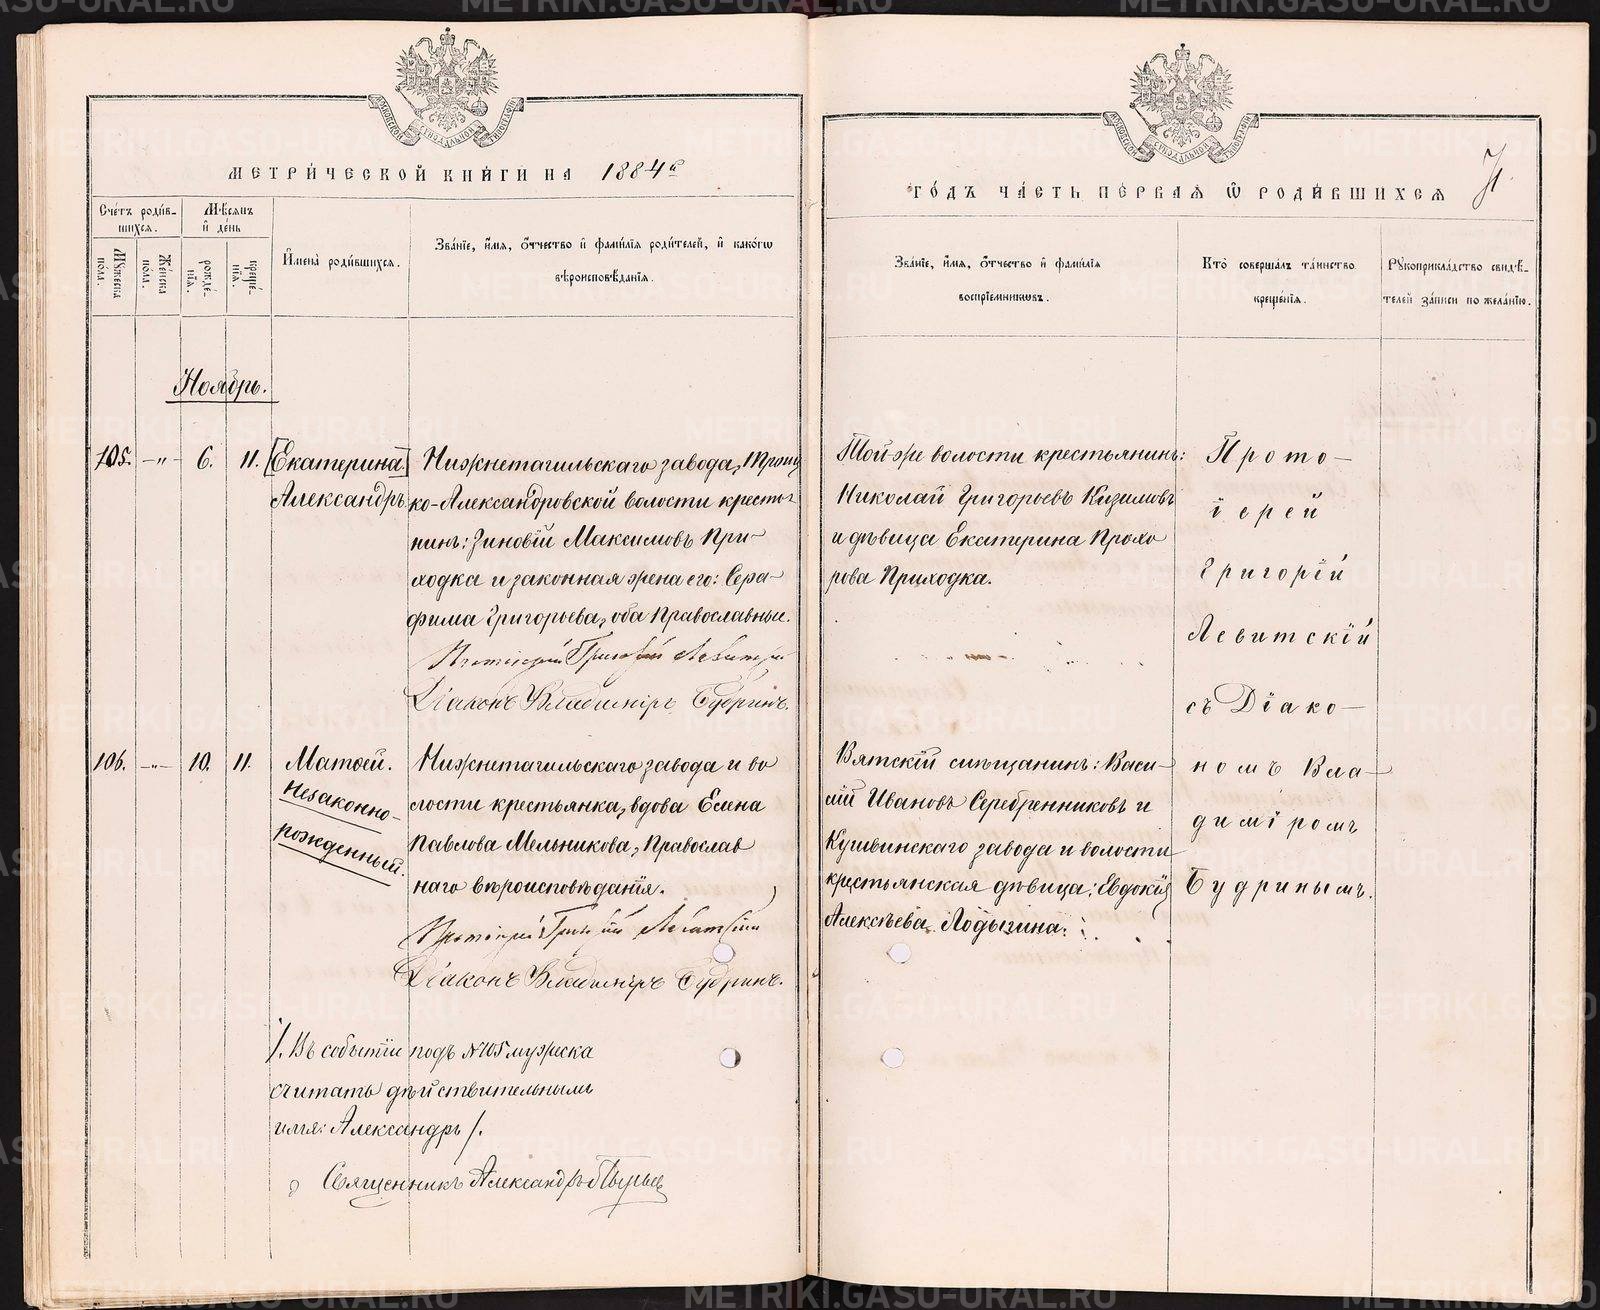 МЕТРИ́ЧЕСКОЙ КНИ́ГИ НА 1884й
Сче́тъ роди́в-
шихся.
Мѣ́сяцъ
и҆ де́нь
Мꙋ́жеска по́ла.
Же́нска по́ла.
рожде́-
нїѧ.
креще́-
нїѧ.
И҆мена̀ роди́вшихсѧ.
Зва́нїе, и҆́мѧ, ѻ҆́тчество и҆ фами́лїѧ роди́телей, и҆ како́гѡ
вѣроисповѣ́данїѧ.
Ноябрь.
105. —„— 6. 11. [Екатерина.]
Александръ.
Нижнетагильскаго завода, Троиц
ко-Александровской волости кресть-
нинъ: Зиновій Максимовъ При-
ходка и законная жена его: Сера-
фима Григорьева, оба Православные.
Протоіерей Григорій Левитскій
Діаконъ Владиміръ Будринъ.
106. —„— 10. 11. Матѳей.
Незаконно-
рожденный.
Нижнетагильскаго завода и во
лости крестьянка, вдова Елена
Павлова Мельникова, Православ
наго вѣроисповѣданія.
Протоіерей Григорій Левитскій
Діаконъ Владиміръ Будринъ.
/. Въ событіи подъ №105 мужеска
считать дѣйствительнымъ
имя: Александръ /.
Священникъ Александръ
ГО́ДЪ ЧА́СТЬ ПЕ́РВАѦ Ѡ҆ РОДИ́ВШИХСѦ
71.
Зва́нїе, и҆́мѧ, ѻ҆́тчество и҆ фами́лїѧ
воспрїе́мникѡвъ.
Кто̀ соверша́лъ та́инство
креще́нїѧ.
Рꙋкоприкла́дство свидѣ́-
телей за́писи по жела́нїю.
Той-же волости крестьянинъ:
Николай Григорьевъ Кизимовъ
и дѣвица Екатерина Прохо
рова Приходка.
Вятскій мѣщанинъ: Васи-
лій Ивановъ Серебренниковъ и
Кушвинскаго завода и волости
крестьянская дѣвица: Евдокія
Алексѣева Лодыгина.
Прото-
іерей
Григорій
Левитскій
съ Діако-
номъ Вла-
диміромъ
Будринымъ.
METRIKI.GASO-URAL.RU